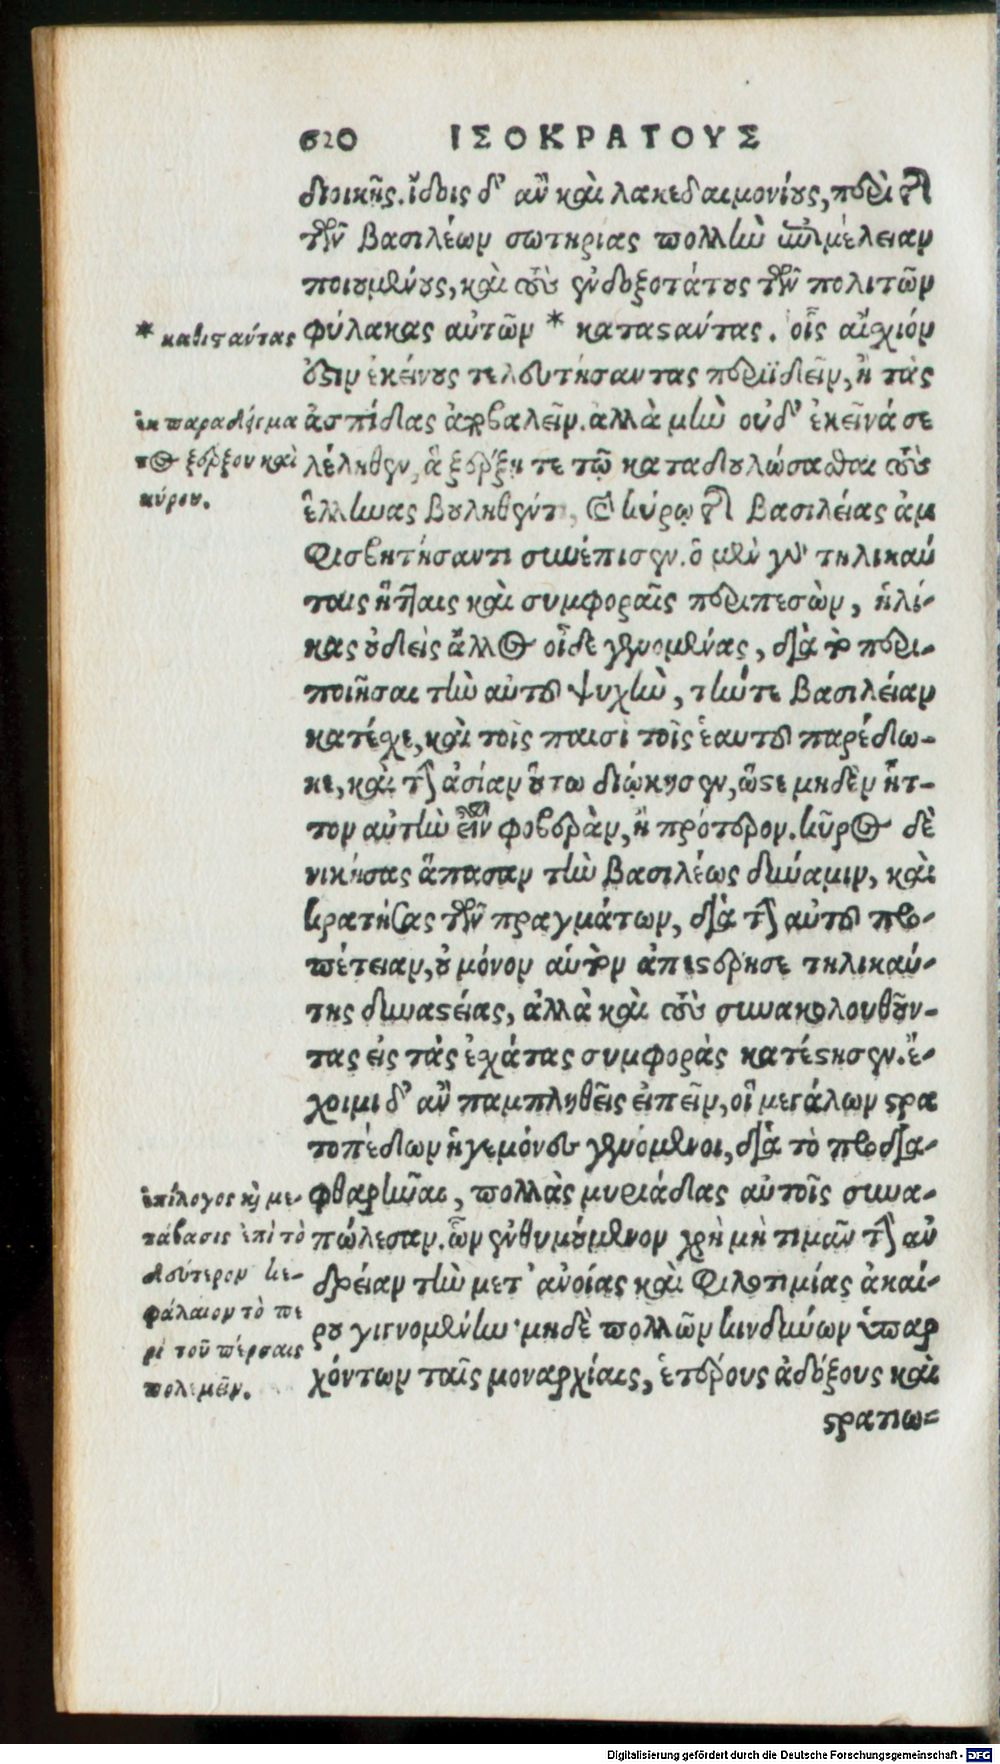 620 ΙΣΟΚΡΑΤΟΥΣ
διοικῇς. ἴδοις δ' ἂν καὶ λακεδαιμονίους, περὶ τῆς
τῶν βασιλέων σωτηρίας πολλὴν ἐπιμέλειαν
ποιουμένους, καὶ τοὺς ἐνδοξοτάτους τῶν πολιτῶν
φύλακας αὐτῶν * καταστάντας. οἷς αἴσχιόν
ἐστιν ἐκείνους τελευτήσαντας περιϊδεῖν, ἢ τὰς
ἀσπίδας ἀποβαλεῖν. ἀλλὰ μὴν οὐδ' ἐκεῖνά σε
λέληθεν, ἃ ξέρξῃ τε τῷ καταδουλώσασθαι τοὺς
ἕλληνας βουληθέντι, καὶ κύρῳ τῆς βασιλείας ἀμ
φισβητήσαντι συνέπεσεν. ὁ μὲν γὰρ τηλικαύ
ταις ἥτταις καὶ συμφοραῖς περιπεσὼν, ἡλί-
κας οὐδεὶς ἄλλος οἶδε γενομένας, διὰ τὸ περι-
ποιῆσαι τὴν αὑτοῦ ψυχὴν, τήντε βασιλείαν
κατέσχε, καὶ τοῖς παισὶ τοῖς ἑαυτοῦ παρέδω-
κε, καὶ τὴν ἀσίαν οὕτω διῴκησεν, ὥστε μηδὲν ἧτ-
τον αὐτὴν εἶναι φοβερὰν, ἢ πρότερον. κῦρος δὲ
νικήσας ἅπασαν τὴν βασιλέως δύναμιν, καὶ
κρατήσας τῶν πραγμάτων, διὰ τὴν αὑτοῦ προ-
πέτειαν, οὐ μόνον αὑτὸν ἀπεστέρησε τηλικαύ-
της δυναστείας, ἀλλὰ καὶ τοὺς συνακολουθοῦν-
τας εἰς τὰς ἐσχάτας συμφορὰς κατέστησεν. ἔ-
χοιμι δ' ἂν παμπληθεῖς εἰπεῖν, οἳ μεγάλων στρα
τοπέδων ἡγεμόνες γενόμενοι, διὰ τὸ προδια-
φθαρῆναι, πολλὰς μυριάδας αὐτοῖς συνα-
πώλεσαν. ὧν ἐνθυμούμενον χρὴ μὴ τιμᾶν τὴν ἀν
δρείαν τὴν μετ' ἀνοίας καὶ φιλοτιμίας ἀκαί-
ρου γιγνομένην· μηδὲ πολλῶν κινδύνων ὑπαρ
χόντων ταῖς μοναρχίαις, ἑτέρους ἀδόξους καὶ
στρατιω-
* καθιστάντας
ἐκ παραδείγμα
τος ξέρξου καὶ
κύρου.
ἐπίλογος καὶ με-
τάβασις ἐπὶ τὸ
δεύτερον κε-
φάλαιον τὸ πε
ρὶ τοῦ πέρσαις
πολεμεῖν.
Digitalisierung gefördert durch die Deutsche Forschungsgemeinschaft - DFG